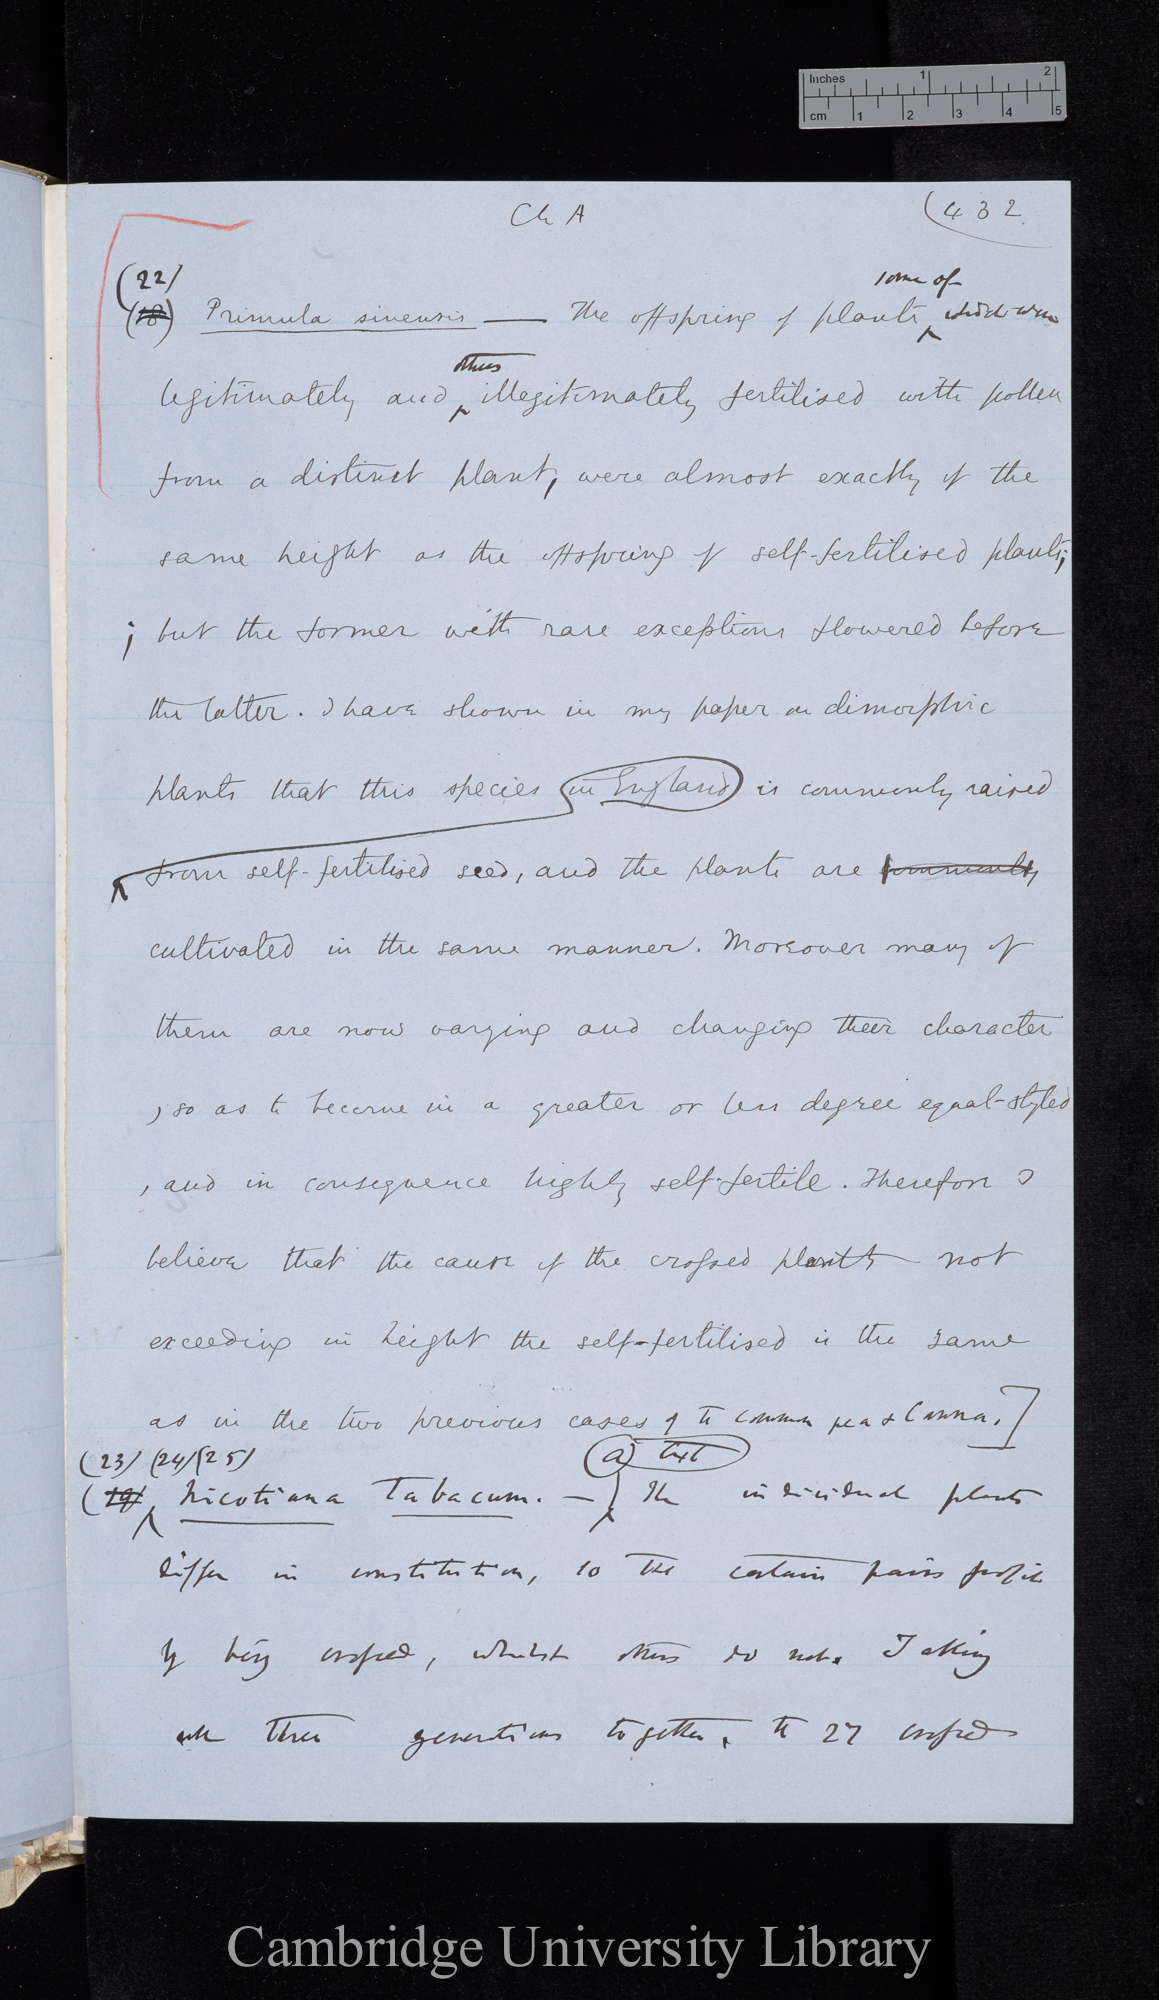 Inches 1 2
cm 1 2 3 4 5
Ch A
(432
(22)
some of
(18) Primula sinensis — The offspring of plants which were
others
legitimately and illegitimately fertilised with pollen
from a distinct plant, were almost exactly of the
same height as the offspring of self-fertilised plants;
; but the former with rare exceptions flowered before
the latter. I have shown in my paper on dimorphic
plants that this species in England is commonly raised
from self-fertilised seed, and the plants are commonly
cultivated in the same manner. Moreover many of
them are now varying and changing their character
, so as to become in a greater or less degree equal-styled
, and in consequence highly self-fertile. Therefore I
believe that the cause of the crossed plants not
exceeding in height the self-fertilised is the same
as in the two previous cases of the common pea & Canna.]
(23) (24) (25)
(a) text
(19) Nicotiana Tabacum. — The individual plants
differ in constitution, so that certain pairs profit
by being crossed, whilst others do not. Taking
all three generations together, the 27 crossed
Cambridge University Library